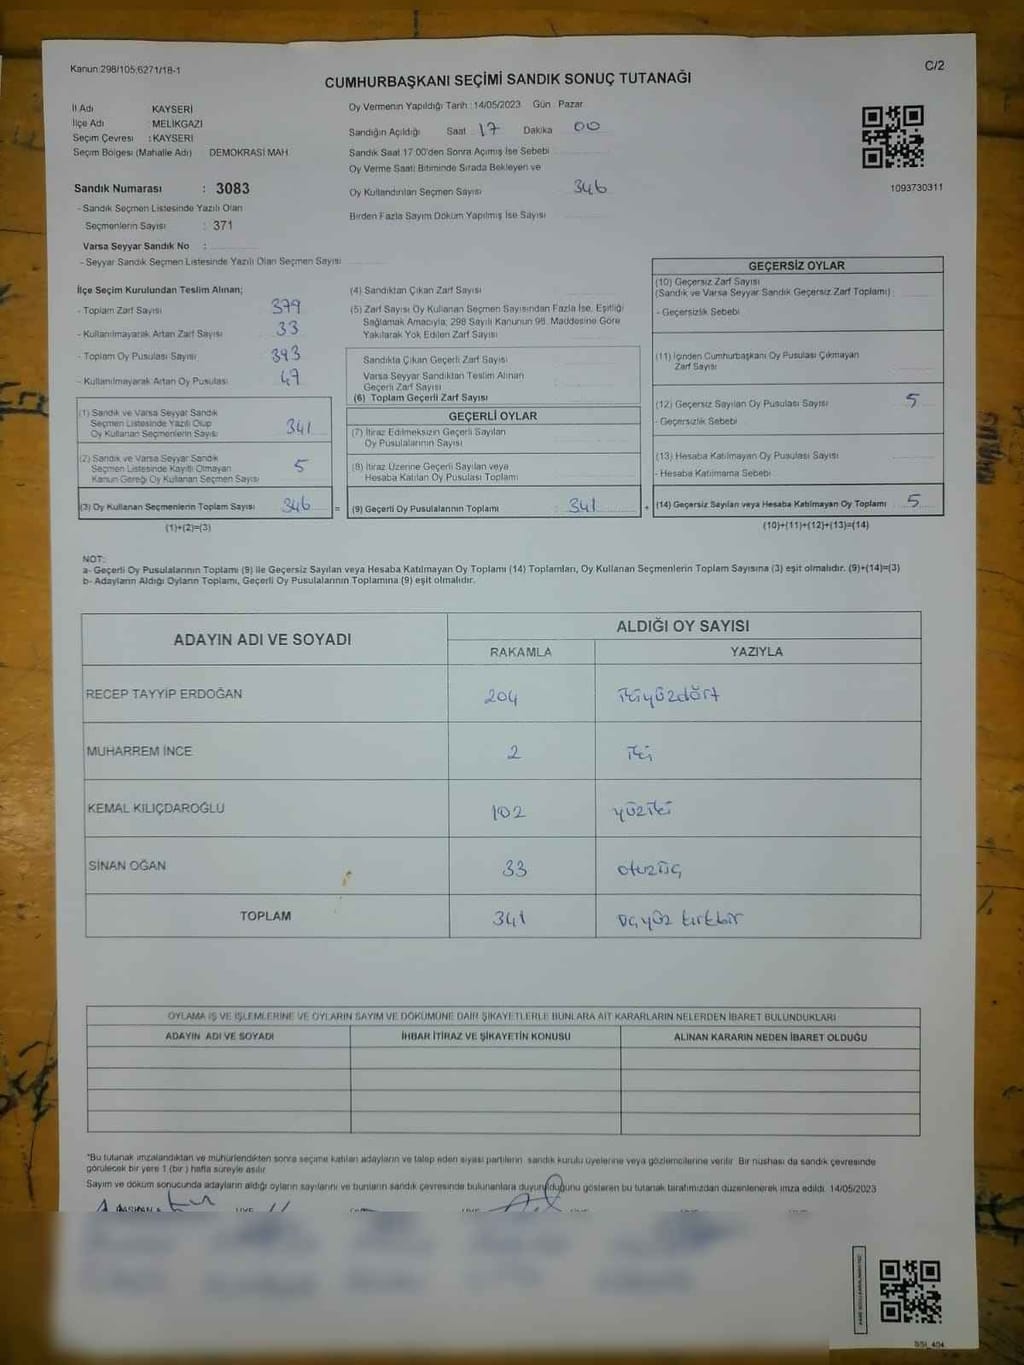 Kanun:298/105;6271/18-1
C/2
CUMHURBAŞKANI SEÇİMİ SANDIK SONUÇ TUTANAĞI
İl Adı KAYSERİ
İlçe Adı : MELİKGAZİ
Seçim Çevresi : KAYSERİ
Seçim Bölgesi (Mahalle Adı) DEMOKRASİ MAH.
Sandık Numarası : 3083
- Sandık Seçmen Listesinde Yazılı Olan
Seçmenlerin Sayısı : 371
Varsa Seyyar Sandık No :
- Seyyar Sandık Seçmen Listesinde Yazılı Olan Seçmen Sayısı
Oy Vermenin Yapıldığı Tarih : 14/05/2023 Gün : Pazar
Sandığın Açıldığı Saat 17 Dakika 00
Sandık Saat 17:00'den Sonra Açımış İse Sebebi
Oy Verme Saati Bitiminde Sırada Bekleyen ve
Oy Kullandırılan Seçmen Sayısı 346
Birden Fazla Sayım Döküm Yapılmış İse Sayısı
1093730311
İlçe Seçim Kurulundan Teslim Alınan;
- Toplam Zarf Sayısı 379
- Kullanılmayarak Artan Zarf Sayısı 33
- Toplam Oy Pusulası Sayısı 393
- Kullanılmayarak Artan Oy Pusulası 47
(1) Sandık ve Varsa Seyyar Sandık
Seçmen Listesinde Yazılı Olup
Oy Kullanan Seçmenlerin Sayısı 341
(2) Sandık ve Varsa Seyyar Sandık
Seçmen Listesinde Kayıtlı Olmayan
Kanun Gereği Oy Kullanan Seçmen Sayısı 5
(3) Oy Kullanan Seçmenlerin Toplam Sayısı 346 =
(1)+(2)=(3)
(4) Sandıktan Çıkan Zarf Sayısı
(5) Zarf Sayısı Oy Kullanan Seçmen Sayısından Fazla İse, Eşitliği
Sağlamak Amacıyla; 298 Sayılı Kanunun 98. Maddesine Göre
Yakılarak Yok Edilen Zarf Sayısı
Sandıkta Çıkan Geçerli Zarf Sayısı
Varsa Seyyar Sandıktan Teslim Alınan
Geçerli Zarf Sayısı
(6) Toplam Geçerli Zarf Sayısı
GEÇERLİ OYLAR
(7) İtiraz Edilmeksizin Geçerli Sayılan
Oy Pusulalarının Sayısı
(8) İtiraz Üzerine Geçerli Sayılan veya
Hesaba Katılan Oy Pusulası Toplamı
(9) Geçerli Oy Pusulalarının Toplamı : 341 +
GEÇERSİZ OYLAR
(10) Geçersiz Zarf Sayısı
(Sandık ve Varsa Seyyar Sandık Geçersiz Zarf Toplamı) :
- Geçersizlik Sebebi
(11) İçinden Cumhurbaşkanı Oy Pusulası Çıkmayan
Zarf Sayısı
(12) Geçersiz Sayılan Oy Pusulası Sayısı 5
- Geçersizlik Sebebi
(13) Hesaba Katılmayan Oy Pusulası Sayısı
- Hesaba Katılmama Sebebi
(14) Geçersiz Sayılan veya Hesaba Katılmayan Oy Toplamı 5
(10)+(11)+(12)+(13)=(14)
NOT:
a- Geçerli Oy Pusulalarının Toplamı (9) ile Geçersiz Sayılan veya Hesaba Katılmayan Oy Toplamı (14) Toplamları, Oy Kullanan Seçmenlerin Toplam Sayısına (3) eşit olmalıdır. (9)+(14)=(3)
b- Adayların Aldığı Oyların Toplamı, Geçerli Oy Pusulalarının Toplamına (9) eşit olmalıdır.
ADAYIN ADI VE SOYADI
ALDIĞI OY SAYISI
RAKAMLA YAZIYLA
RECEP TAYYİP ERDOĞAN 204 ikiyüzdört
MUHARREM İNCE 2 iki
KEMAL KILIÇDAROĞLU 102 yüziki
SİNAN OĞAN 33 otuzüç
TOPLAM 341 üçyüz kırkbir
OYLAMA İŞ VE İŞLEMLERİNE VE OYLARIN SAYIM VE DÖKÜMÜNE DAİR ŞİKAYETLERLE BUNLARA AİT KARARLARIN NELERDEN İBARET BULUNDUKLARI
ADAYIN ADI VE SOYADI İHBAR İTİRAZ VE ŞİKAYETİN KONUSU ALINAN KARARIN NEDEN İBARET OLDUĞU
*Bu tutanak imzalandıktan ve mühürlendikten sonra seçime katılan adayların ve talep eden siyasi partilerin sandık kurulu üyelerine veya gözlemcilerine verilir. Bir nüshası da sandık çevresinde
görülecek bir yere 1 (bir) hafta süreyle asılır.
Sayım ve döküm sonucunda adayların aldığı oyların sayılarını ve bunların sandık çevresinde bulunanlara duyurulduğunu gösteren bu tutanak tarafımızdan düzenlenerek imza edildi. 14/05/2023